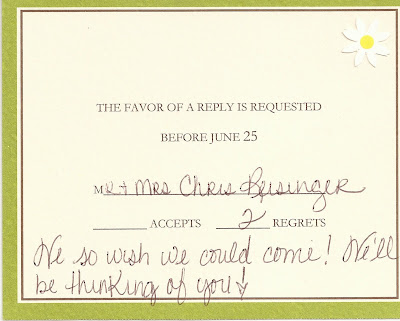 THE FAVOR OF A REPLY IS REQUESTED
BEFORE JUNE 25
MR + MRS Chris Reisinger
______ ACCEPTS 2 REGRETS
We so wish we could come! We'll
be thinking of you!